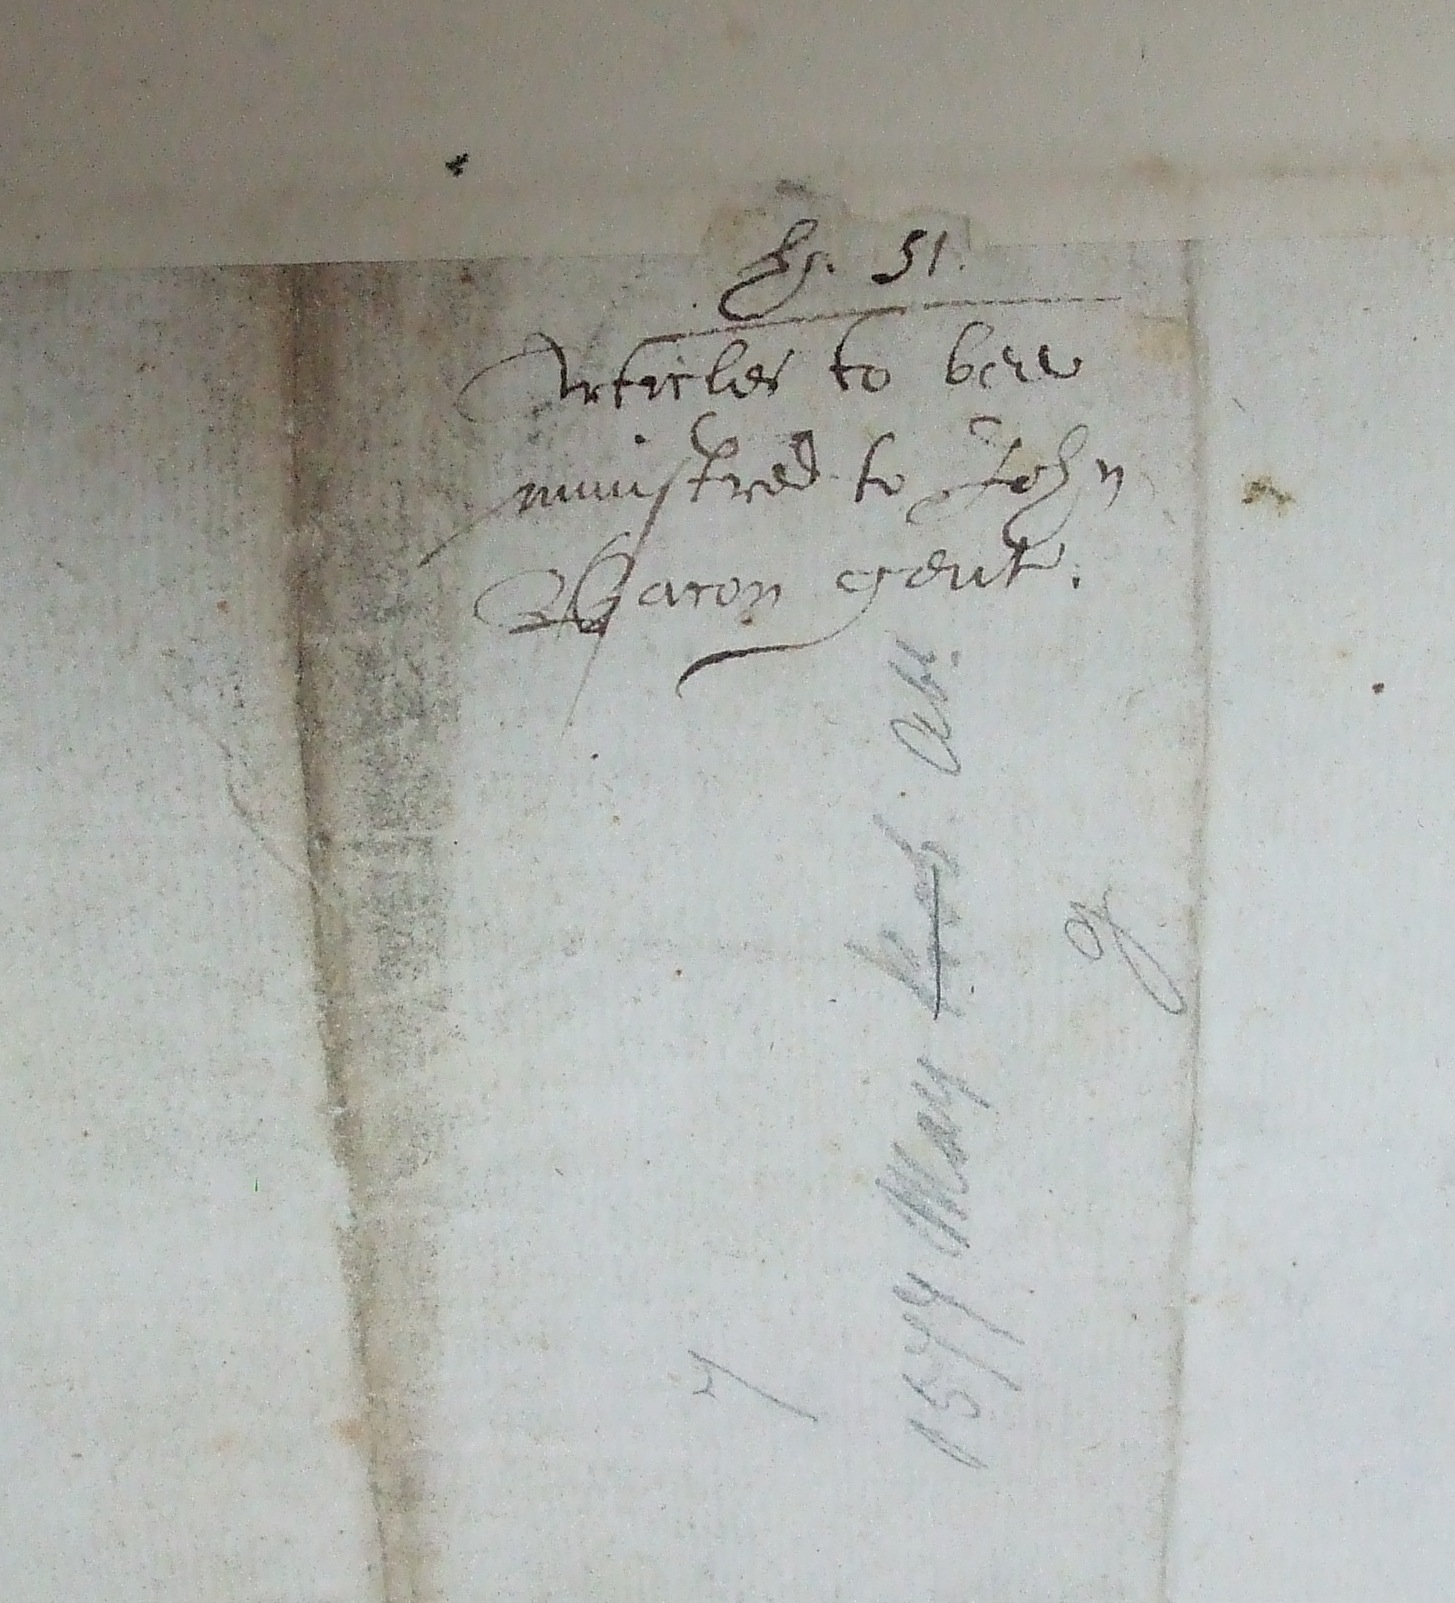 51.
Articles to bee
ministred to John
Bacon gent.
1577 May
7